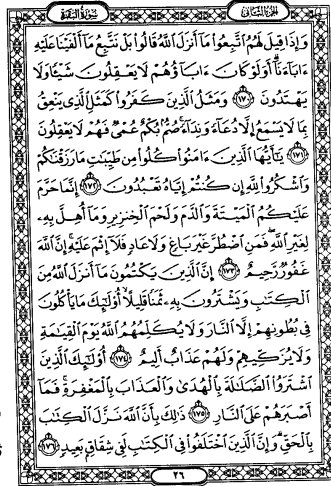 الجزء الثانى
سورة البقرة
وَإِذَا قِيلَ لَهُمُ اتَّبِعُوا مَا أَنزَلَ اللَّهُ قَالُوا بَلْ نَتَّبِعُ مَا أَلْفَيْنَا عَلَيْهِ
ءَابَاءَنَا أَوَلَوْ كَانَ ءَابَاؤُهُمْ لَا يَعْقِلُونَ شَيْئًا وَلَا
يَهْتَدُونَ ١٧٠ وَمَثَلُ الَّذِينَ كَفَرُوا كَمَثَلِ الَّذِي يَنْعِقُ
بِمَا لَا يَسْمَعُ إِلَّا دُعَاءً وَنِدَاءً صُمٌّ بُكْمٌ عُمْيٌ فَهُمْ لَا يَعْقِلُونَ
١٧١ يَٰأَيُّهَا الَّذِينَ ءَامَنُوا كُلُوا مِن طَيِّبَٰتِ مَا رَزَقْنَٰكُمْ
وَاشْكُرُوا لِلَّهِ إِن كُنتُمْ إِيَّاهُ تَعْبُدُونَ ١٧٢ إِنَّمَا حَرَّمَ
عَلَيْكُمُ الْمَيْتَةَ وَالدَّمَ وَلَحْمَ الْخِنزِيرِ وَمَا أُهِلَّ بِهِ
لِغَيْرِ اللَّهِ فَمَنِ اضْطُرَّ غَيْرَ بَاغٍ وَلَا عَادٍ فَلَا إِثْمَ عَلَيْهِ إِنَّ اللَّهَ
غَفُورٌ رَّحِيمٌ ١٧٣ إِنَّ الَّذِينَ يَكْتُمُونَ مَا أَنزَلَ اللَّهُ مِنَ
الْكِتَٰبِ وَيَشْتَرُونَ بِهِ ثَمَنًا قَلِيلًا أُولَٰئِكَ مَا يَأْكُلُونَ
فِي بُطُونِهِمْ إِلَّا النَّارَ وَلَا يُكَلِّمُهُمُ اللَّهُ يَوْمَ الْقِيَٰمَةِ
وَلَا يُزَكِّيهِمْ وَلَهُمْ عَذَابٌ أَلِيمٌ ١٧٤ أُولَٰئِكَ الَّذِينَ
اشْتَرَوُا الضَّلَٰلَةَ بِالْهُدَىٰ وَالْعَذَابَ بِالْمَغْفِرَةِ فَمَا
أَصْبَرَهُمْ عَلَى النَّارِ ١٧٥ ذَٰلِكَ بِأَنَّ اللَّهَ نَزَّلَ الْكِتَٰبَ
بِالْحَقِّ وَإِنَّ الَّذِينَ اخْتَلَفُوا فِي الْكِتَٰبِ لَفِي شِقَاقٍ بَعِيدٍ ١٧٦
٢٦